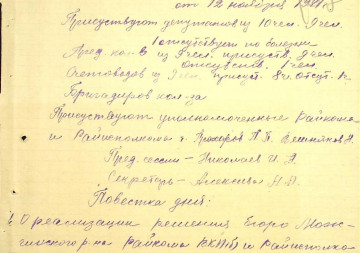 от 12 ноября 194
Присуствуют депутатов из 10 чел. 9 чел.
1 отсутствует по болезни
Пред. кол-в из 9 чел. присутств. 8 чел.
отсутств. 1 чел.
Счетоводов из 9 чел. присут. 8 ч. отсут. 1 ч.
Бригадиров кол-за
Присуствуют уполномоченные Райкома
и Райисполкома т. Захаров П.
Пред. сессии – Николаев И. А.
Секретарь –
Повестка дня:
О реализации решения Бюро
Райкома ВКП(б) и Райисполко